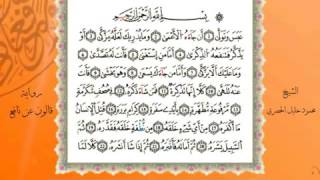 بِسْمِ اللَّهِ الرَّحْمَٰنِ الرَّحِيمِ
عَبَسَ وَتَوَلَّىٰ أَن جَاءَهُ الْأَعْمَىٰ وَمَا يُدْرِيكَ لَعَلَّهُ يَزَّكَّىٰ أَوْ
يَذَّكَّرُ فَتَنفَعُهُ الذِّكْرَىٰ أَمَّا مَنِ اسْتَغْنَىٰ فَأَنتَ لَهُ تَصَّدَّىٰ
وَمَا عَلَيْكَ أَلَّا يَزَّكَّىٰ وَأَمَّا مَن جَاءَكَ يَسْعَىٰ وَهُوَ يَخْشَىٰ فَأَنتَ
عَنْهُ تَلَهَّىٰ كَلَّا إِنَّهَا تَذْكِرَةٌ فَمَن شَاءَ ذَكَرَهُ فِي صُحُفٍ مُّكَرَّمَةٍ
مَّرْفُوعَةٍ مُّطَهَّرَةٍ بِأَيْدِي سَفَرَةٍ كِرَامٍ بَرَرَةٍ قُتِلَ الْإِنسَانُ
مَا أَكْفَرَهُ مِنْ أَيِّ شَيْءٍ خَلَقَهُ مِن نُّطْفَةٍ خَلَقَهُ فَقَدَّرَهُ ثُمَّ
السَّبِيلَ يَسَّرَهُ ثُمَّ أَمَاتَهُ فَأَقْبَرَهُ ثُمَّ إِذَا شَا أَنشَرَهُ كَلَّا لَمَّا
الشيخ
محمود خليل الحصري
رواية
قالون عن نافع